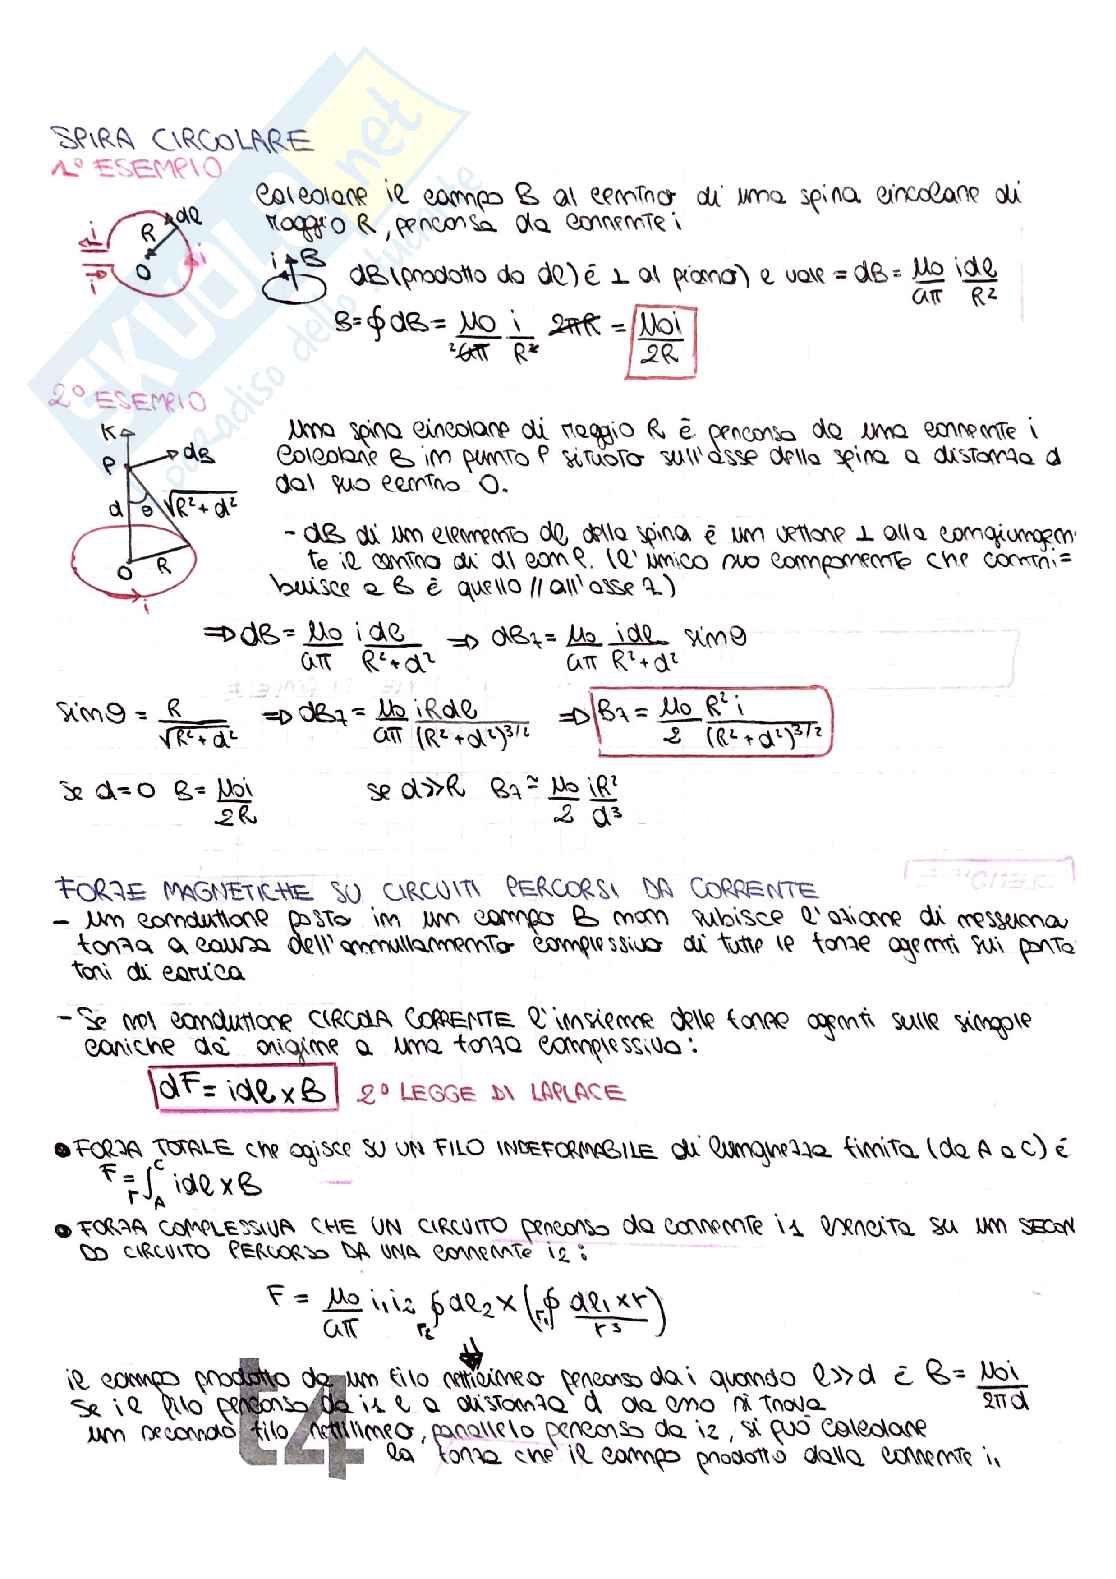 SPIRA CIRCOLARE
1° ESEMPIO
Calcolare il campo B al centro di una spira circolare di
raggio R, percorsa da corrente i
i R dl O i i
i B
dB (prodotto da dl) è ⊥ al piano) e vale = dB = μ0/4π idl/R²
B = ∮ dB = μ0/4π i/R² 2πR = μ0i/2R
2° ESEMPIO
Una spira circolare di raggio R è percorsa da una corrente i
Calcolare B in punto P situato sull'asse della spira a distanza d
dal suo centro O.
K P dB d θ √R²+d² O R i
- dB di un elemento dl della spira è un vettore ⊥ alla congiungen
te il centro di dl con P. (l'unico suo componente che contri=
buisce a B è quello // all'asse z)
⇒ dB = μ0/4π idl/R²+d² ⇒ dBz = μ0/4π idl/R²+d² sinθ
sinθ = R/√R²+d² ⇒ dBz = μ0/4π iRdl/(R²+d²)^3/2 ⇒ Bz = μ0/2 R²i/(R²+d²)^3/2
Se d=0 B = μ0i/2R se d>>R Bz ≃ μ0/2 iR²/d³
FORZE MAGNETICHE SU CIRCUITI PERCORSI DA CORRENTE
- Un conduttore posto in un campo B non subisce l'azione di nessuna
forza a causa dell'annullamento complessivo di tutte le forze agenti sui porta
tori di carica
- Se nel conduttore CIRCOLA CORRENTE l'insieme delle forze agenti sulle singole
cariche dà origine a una forza complessiva:
dF = idl x B 2° LEGGE DI LAPLACE
• FORZA TOTALE che agisce SU UN FILO INDEFORMABILE di lunghezza finita (da A a C) è
F = Γ∫ᴬC idl x B
• FORZA COMPLESSIVA CHE UN CIRCUITO percorso da corrente i1 esercita su un SECON
DO CIRCUITO PERCORSO DA UNA corrente i2:
F = μ0/4π i1i2 Γ2∮ dl2 x (Γ1∮ dl1 x r/r³)
il campo prodotto da un filo rettilineo percorso da i quando l>>d è B = μ0i/2πd
Se il filo percorso da i1 e a distanza d da eno si trova
un secondo filo rettilineo, parallelo percorso da i2, si può calcolare
la forza che il campo prodotto dalla corrente i1
SKUOLA.net
paradiso dello studente
t4